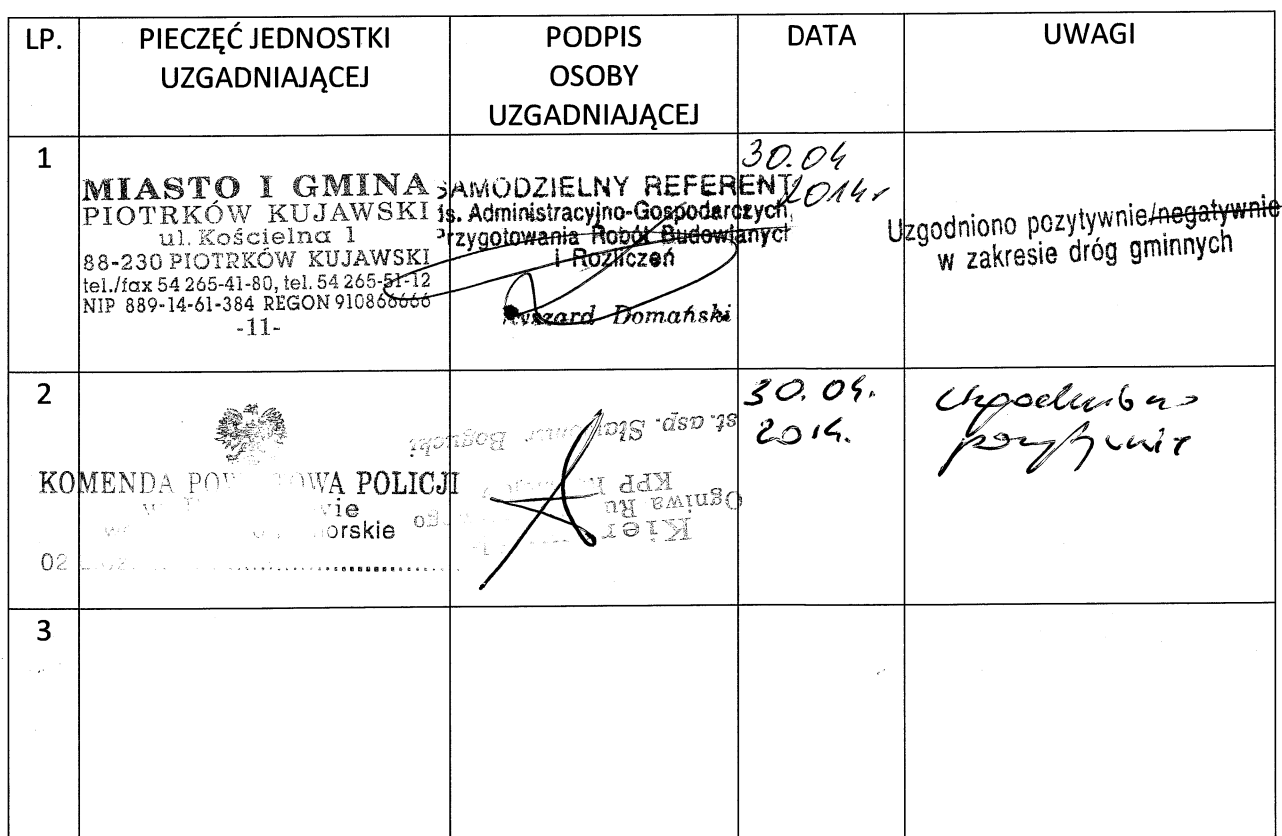 LP.
PIECZĘĆ JEDNOSTKI
UZGADNIAJĄCEJ
PODPIS
OSOBY
UZGADNIAJĄCEJ
DATA
UWAGI
1
MIASTO I GMINA
PIOTRKÓW KUJAWSKI
ul. Kościelna 1
88-230 PIOTRKÓW KUJAWSKI
tel./fax 54 265-41-80, tel. 54 265-51-12
NIP 889-14-61-384 REGON 910866666
-11-
SAMODZIELNY REFERENT
ds. Administracyjno-Gospodarczych,
Przygotowania Robót Budowlanych
i Rozliczeń
Ryszard Domański
30.04
2014r
Uzgodniono pozytywnie/negatywnie
w zakresie dróg gminnych
2
KOMENDA POWIATOWA POLICJI
orskie
02
Kier
Ogniwa Ru
KPP
st. asp. Bogucki
30.04.
2014.
uzgodniono
pozytywnie
3